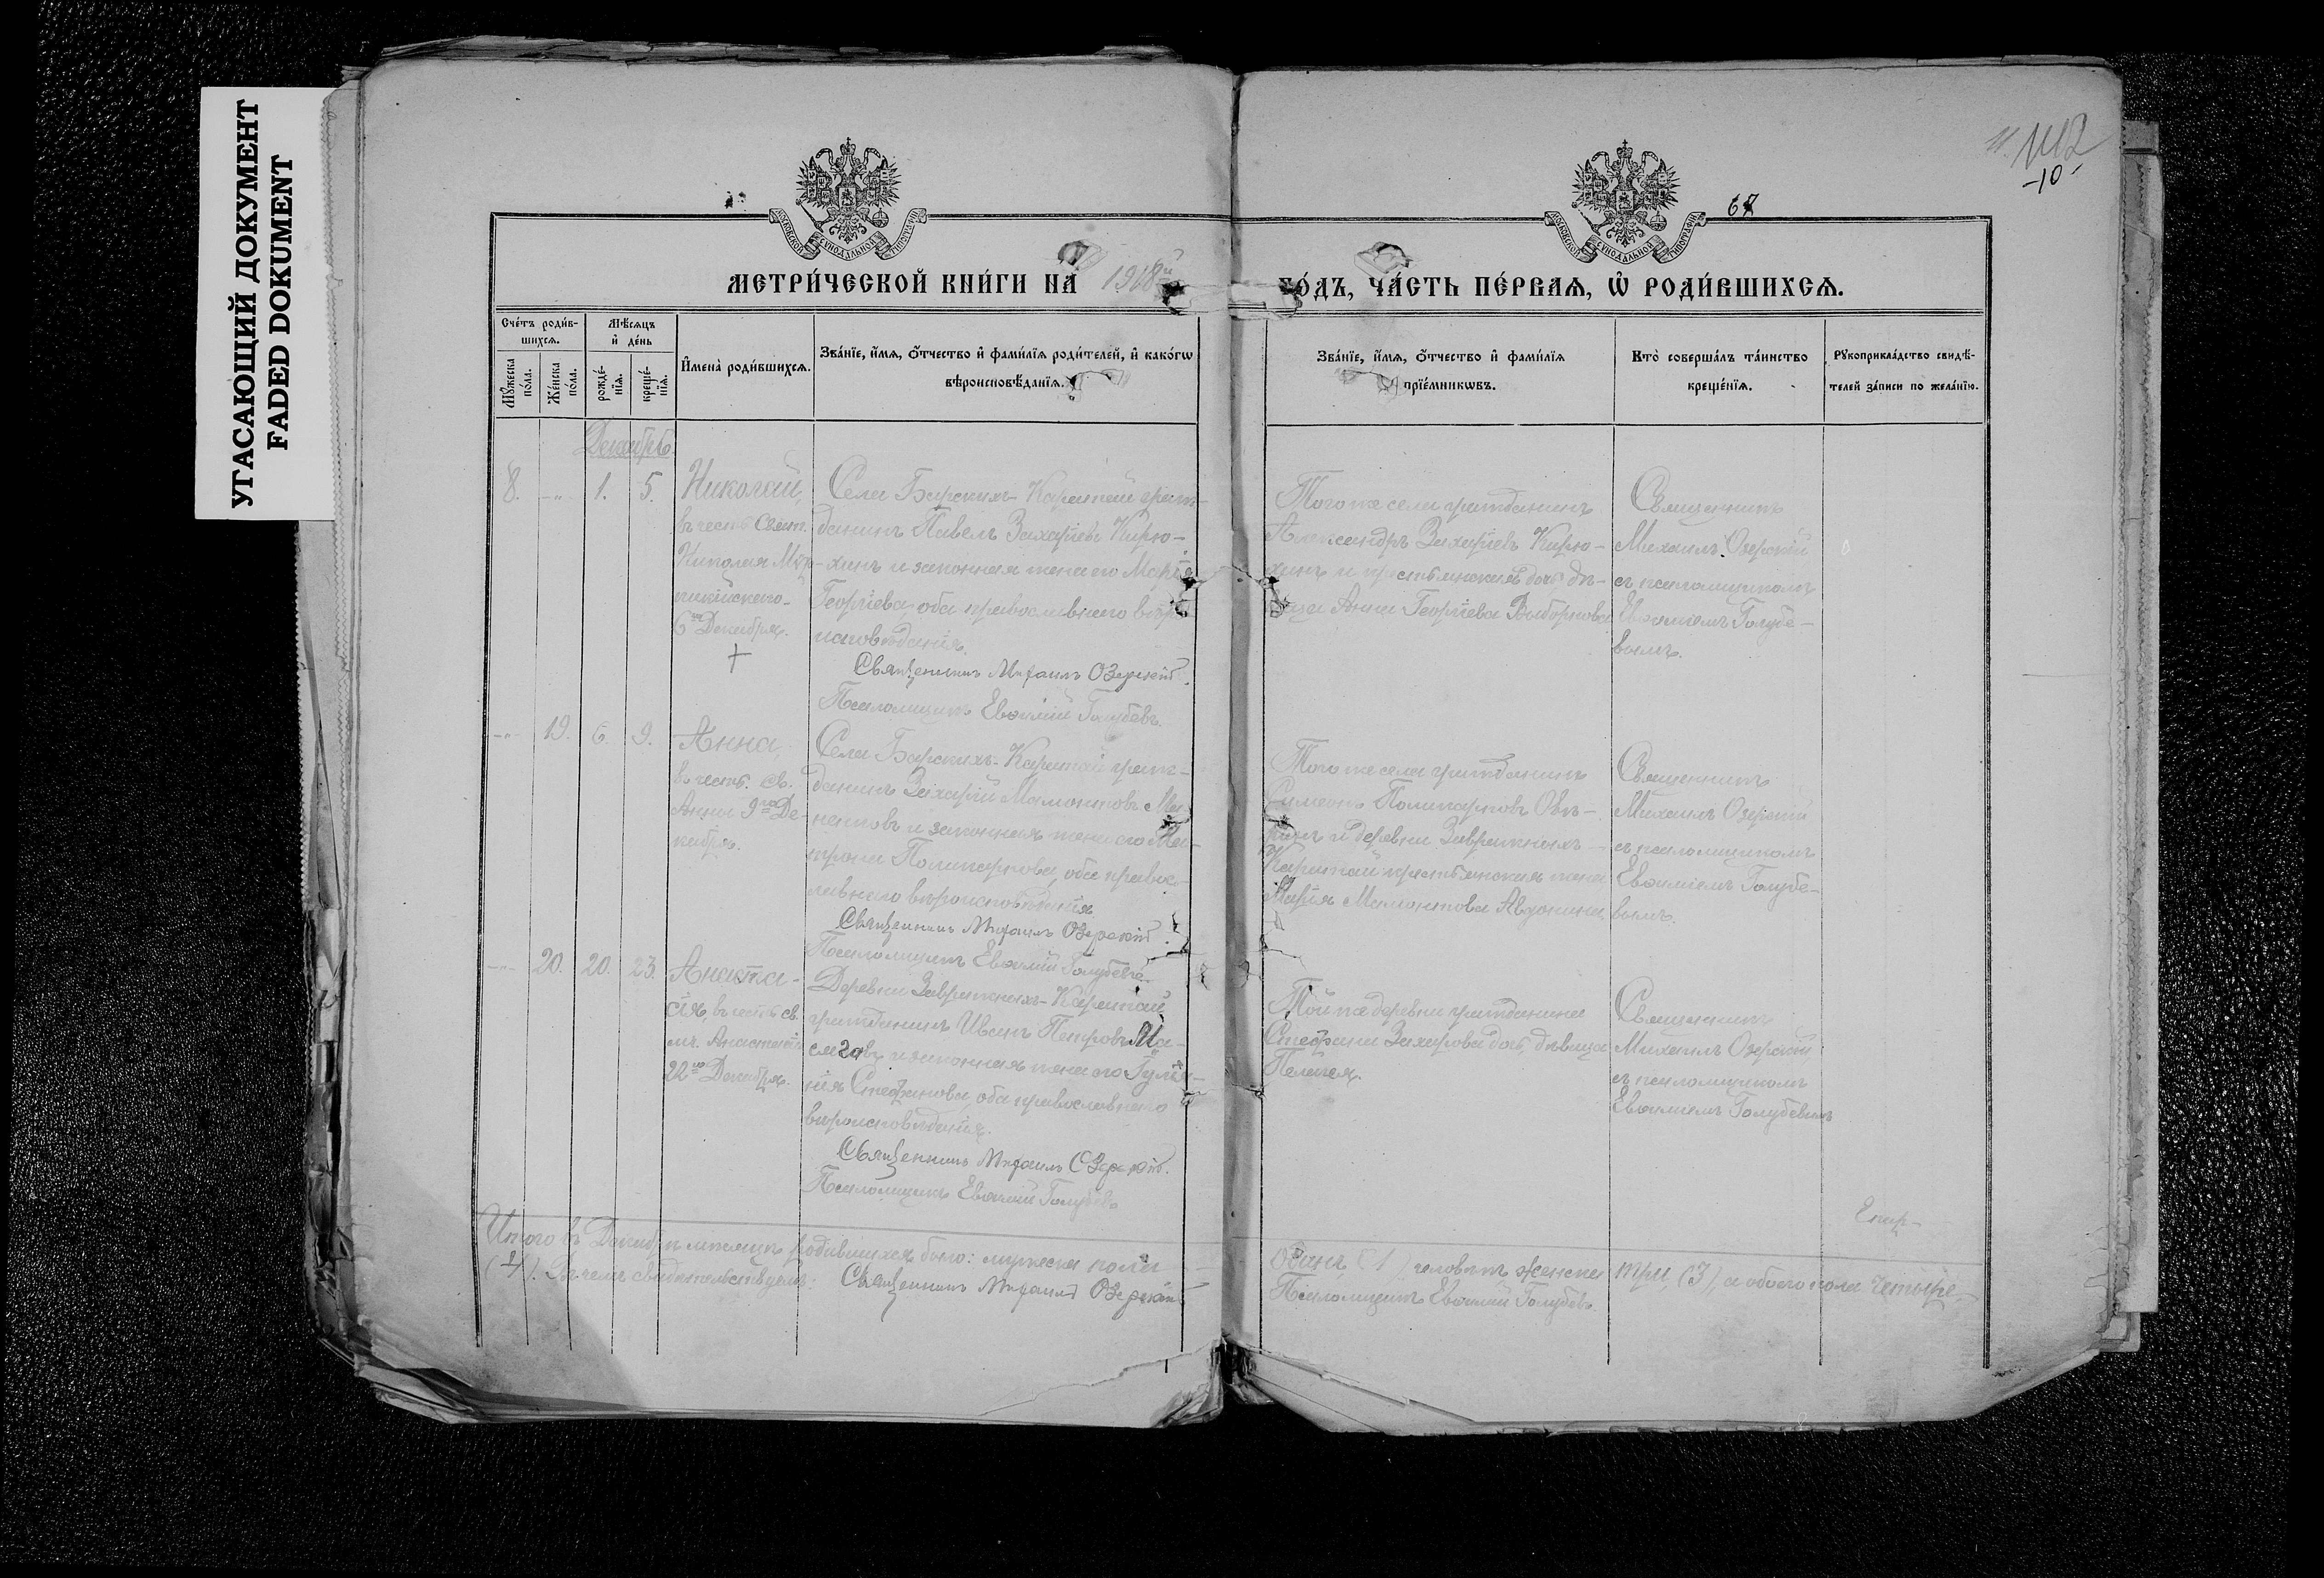 УГАСАЮЩИЙ ДОКУМЕНТ
FADED DOKUMENT
11. 1112
-10-
67
МОСКОВСКОЙ СѴНОДАЛЬНОЙ ТИПОГРАФІИ
МОСКОВСКОЙ СѴНОДАЛЬНОЙ ТИПОГРАФІИ
МЕТРИ́ЧЕСКОЙ КНИ́ГИ НА 1918й
ГО́ДЪ, ЧА́СТЬ ПЕ́РВАЯ, Ѡ РОДИ́ВШИХСЯ.
Сче́тъ роди́в-
шихся.
Мꙋ́жеска по́ла.
Же́нска по́ла.
Мѣ́сяцъ
и҆ де́нь
рожде́-
нїя.
креще́-
нїя.
И҆мена̀ роди́вшихся.
Зва́нїе, и҆́мя, ѻ҆́тчество и҆ фами́лїя роди́телей, и҆ како́гѡ
вѣроисповѣ́данїя.
Зва́нїе, и҆́мя, ѻ҆́тчество и҆ фами́лїя
прїе́мникѡвъ.
Кто̀ соверша́лъ та́инство
креще́нїя.
Рꙋкоприкла́дство свидѣ́-
телей за́писи по жела́нїю.
Декабрь.
8. -"- 1. 5. Николай,
въ честь Свят.
Николая Мѵр-
ликійскаго
6го Декабря.
+
Села Барскихъ-Каратай граж-
данинъ Павелъ Захаріевъ Кирю-
хинъ и законная жена его Марія
Георгіева, оба православнаго вѣро-
исповѣданія.
Священникъ Михаилъ Озерскій.
Псаломщикъ Евѳимій Голубевъ.
Тогоже села гражданинъ
Александръ Захаріевъ Кирю-
хинъ и крестьянская дочь дѣ-
вица Анна Георгіева Выборнова
Священникъ
Михаилъ Озерскій
съ псаломщикомъ
Евѳиміемъ Голубе-
вымъ.
-"- 19. 6. 9. Анна,
въ честь св.
Анны 9го Де-
кабря.
Села Барскихъ-Каратай граж-
данинъ Захарій Мамонтовъ
и законная жена его Ма-
трона Поликарпова, оба правос-
лавнаго вѣроисповѣданія.
Священникъ Михаилъ Озерскій.
Псаломщикъ Евѳимій Голубевъ.
Тогоже села гражданинъ
Симеонъ Поликарповъ
и деревни Завражныхъ-
Каратай крестьянская жена
Марія Мамонтова Авдонина
Священникъ
Михаилъ Озерскій
съ псаломщикомъ
Евѳиміемъ Голубе-
вымъ.
-"- 20. 20. 23. Анаста-
сія, въ честь св.
мч. Анастасіи
22го Декабря.
Деревни Завражныхъ-Каратай
гражданинъ Иванъ Петровъ
и законная жена его Іуліа-
нія Стефанова, оба православнаго
вѣроисповѣданія.
Священникъ Михаилъ Озерскій.
Псаломщикъ Евѳимій Голубевъ
Тойже деревни гражданина
Стефана Захарова дочь, дѣвица
Пелагея.
Священникъ
Михаилъ Озерскій
съ псаломщикомъ
Евѳиміемъ Голубевымъ
Итого въ Декабрѣ мѣсяцѣ родившихся было: мужеска пола
одинъ (1) человѣкъ, женска три (3), а обоего пола четыре
(4). Въ чемъ свидѣтельствуемъ: Священникъ Михаилъ Озерскій
Псаломщикъ Евѳимій Голубевъ.